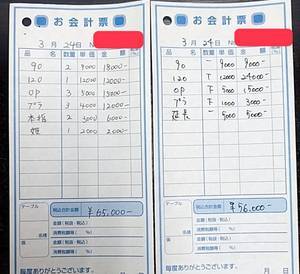 お会計票
3月24日 No.
品名 数量 単価 金額
90 2 9000 18000-
120 1 12000 12000-
OP 3 5000 15000-
プラ 4 3000 12000-
本指 2 3000 6000-
姫 1 2000 2000-
テーブル 税込合計金額 ¥65,000-
金額(税抜・税込)
消費税額等( %)
金額(税抜・税込)
消費税額等( %)
名様
係
毎度ありがとうございます。
お会計票
3月24日 No.
品名 数量 単価 金額
90 一 9000 9000-
120 T 12000 24000-
OP 下 5000 15000-
プラ 下 1000 3000-
延長 一 5000 5000-
テーブル 税込合計金額 ¥56,000-
金額(税抜・税込)
消費税額等( %)
金額(税抜・税込)
消費税額等( %)
名様
係
毎度ありがとうございます。
月 日